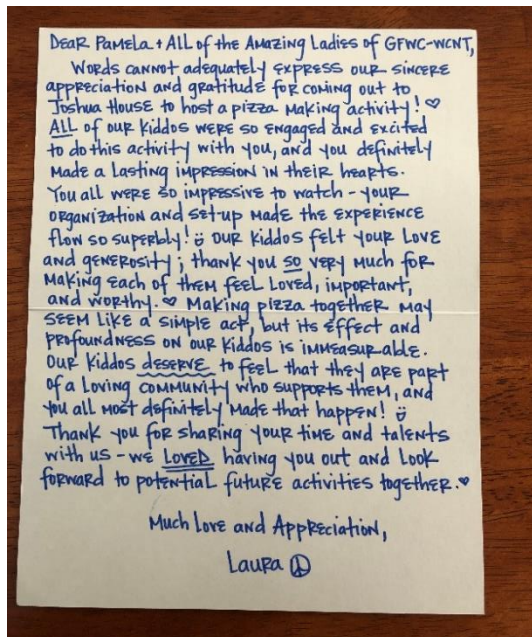 Dear Pamela + All of the Amazing Ladies of GFWC-WCNT,
Words cannot adequately express our sincere
appreciation and gratitude for coming out to
Joshua House to host a pizza making activity! ♡
ALL of our kiddos were so engaged and excited
to do this activity with you, and you definitely
made a lasting impression in their hearts.
You all were so impressive to watch - your
organization and set-up made the experience
flow so superbly! ü Our kiddos felt your love
and generosity; thank you so very much for
making each of them feel loved, important,
and worthy. ♥ Making pizza together may
seem like a simple act, but its effect and
profoundness on our kiddos is immeasurable.
Our kiddos deserve to feel that they are part
of a loving community who supports them, and
you all most definitely made that happen! ü
Thank you for sharing your time and talents
with us - we LOVED having you out and look
forward to potential future activities together. ♥
Much Love and Appreciation,
Laura ☮